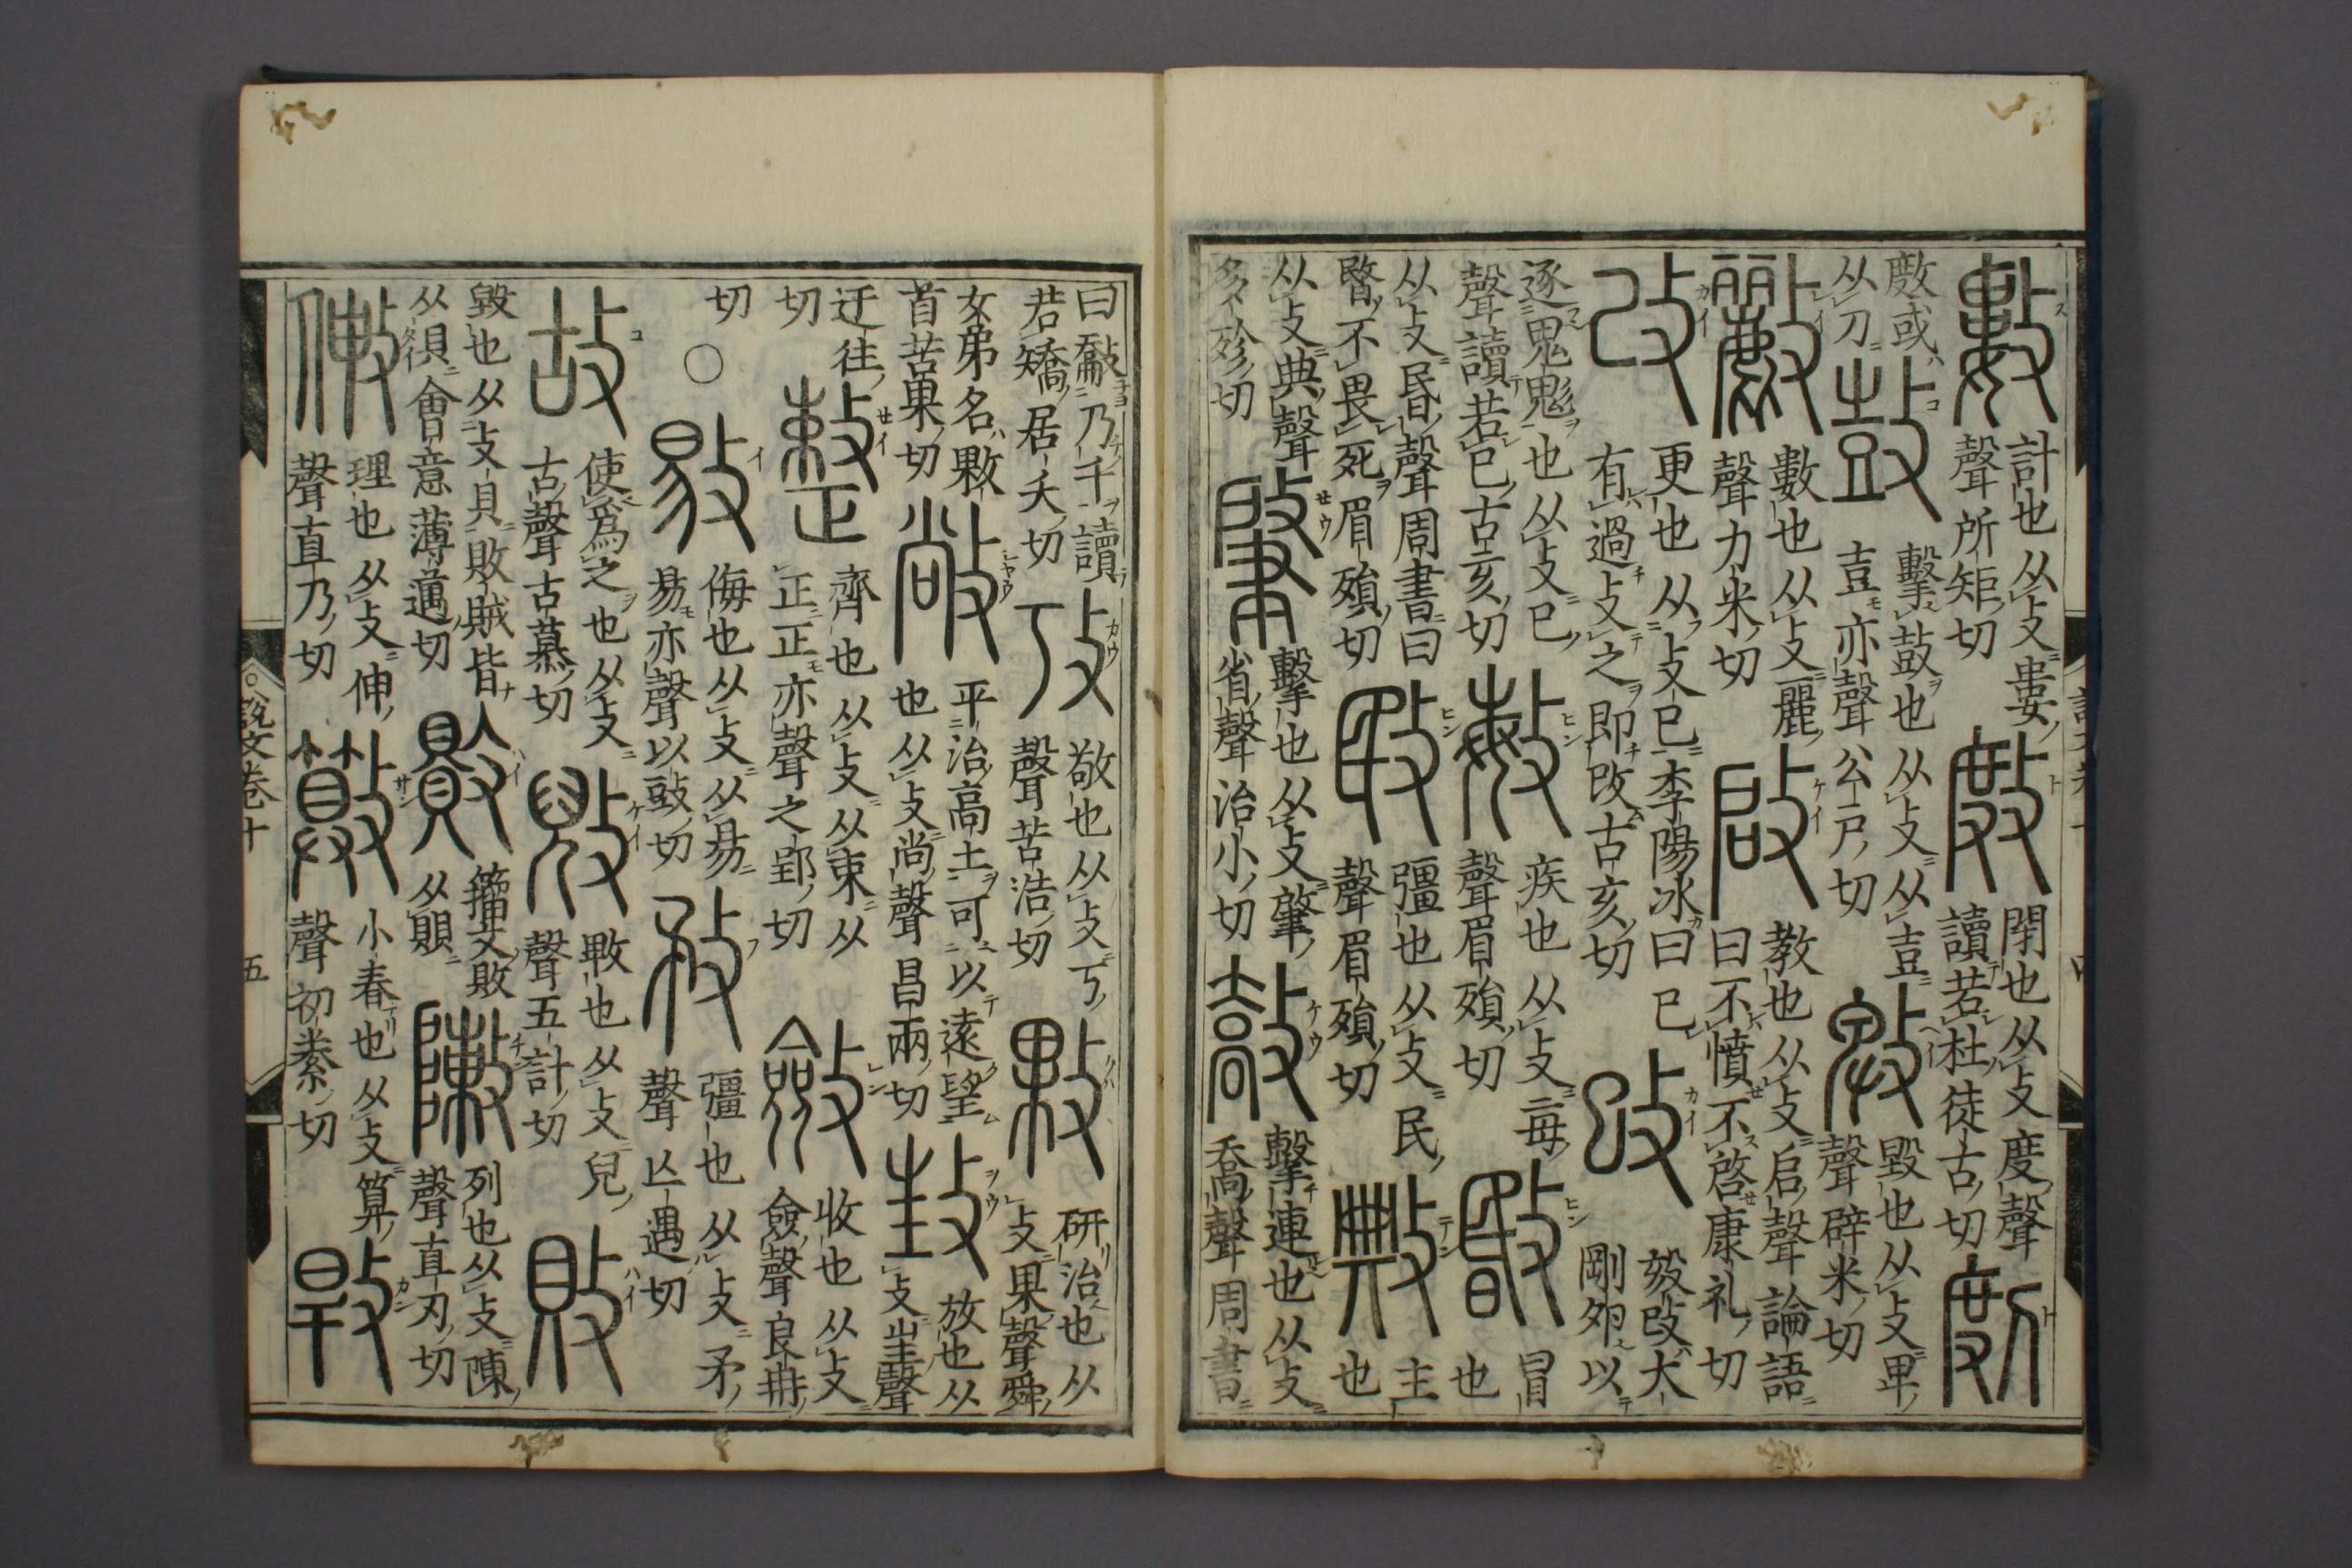 數 計也从攴婁聲所矩切 𢾖 閉也从攴度聲讀若杜徒古切 剫
𢾖或从刀 鼓 擊鼓也从攴从壴壴亦聲公戶切 毀也从攴卑聲辟米切
數也从攴麗聲力米切 啟 教也从攴启聲論語曰不憤不啓康礼切
改 更也从攴己李陽冰曰己有過攴之即改古亥切 攺 㱾攺大剛卯以
逐鬼鬽也从攴巳聲讀若巳古亥切 敏 疾也从攴每聲眉殞切 敯 冒也
从攴昬聲周書曰暋不畏死眉殞切 敃 彊也从攴民聲眉殞切 敟 主也
从攴典聲多殄切 肇 擊也从攴肇省聲治小切 敽 擊連也从攴喬聲周書
曰敽乃千讀若矯居夭切 攷 敬也从攴丂聲苦浩切 敤 研治也从攴果聲舜
女弟名敤首苦果切 敞 平治高土可以遠望也从攴尚聲昌兩切 放也从攴㞷聲
迂往切 整 齊也从攴从束从正正亦聲之郢切 斂 收也从攴僉聲良冉切
切 ○ 敡 侮也从攴从易易亦聲以豉切 敄 彊也从攴矛聲亾遇切
故 使爲之也从攴古聲古慕切 㪒 也从攴兒聲五計切 敗
毀也从攴貝敗賊皆从貝會意薄邁切 籀文敗从賏 敶 列也从攴陳聲直刃切
理也从攴伸聲直乃切 小春也从攴算聲初絭切 㪋
說文卷十 五